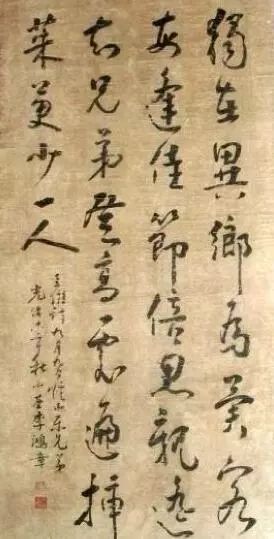 獨在異鄉為異客
每逢佳節倍思親遙
知兄弟登高處遍插
茱萸少一人
王維詩九月九日憶山東兄弟
光緒十 秋 李鴻章